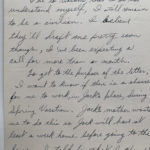 understand myself. I still remain
to be a civilian. I believe
they'll draft me pretty soon
though, I've been expecting a
call for more than a month.
So yet to the purpose of the letter,
I want to know if there is a chance
for me to work in Jack's place during
Spring Vacation. Jack's mother wants
me to do this so Jack will have at
least a week home before going to the